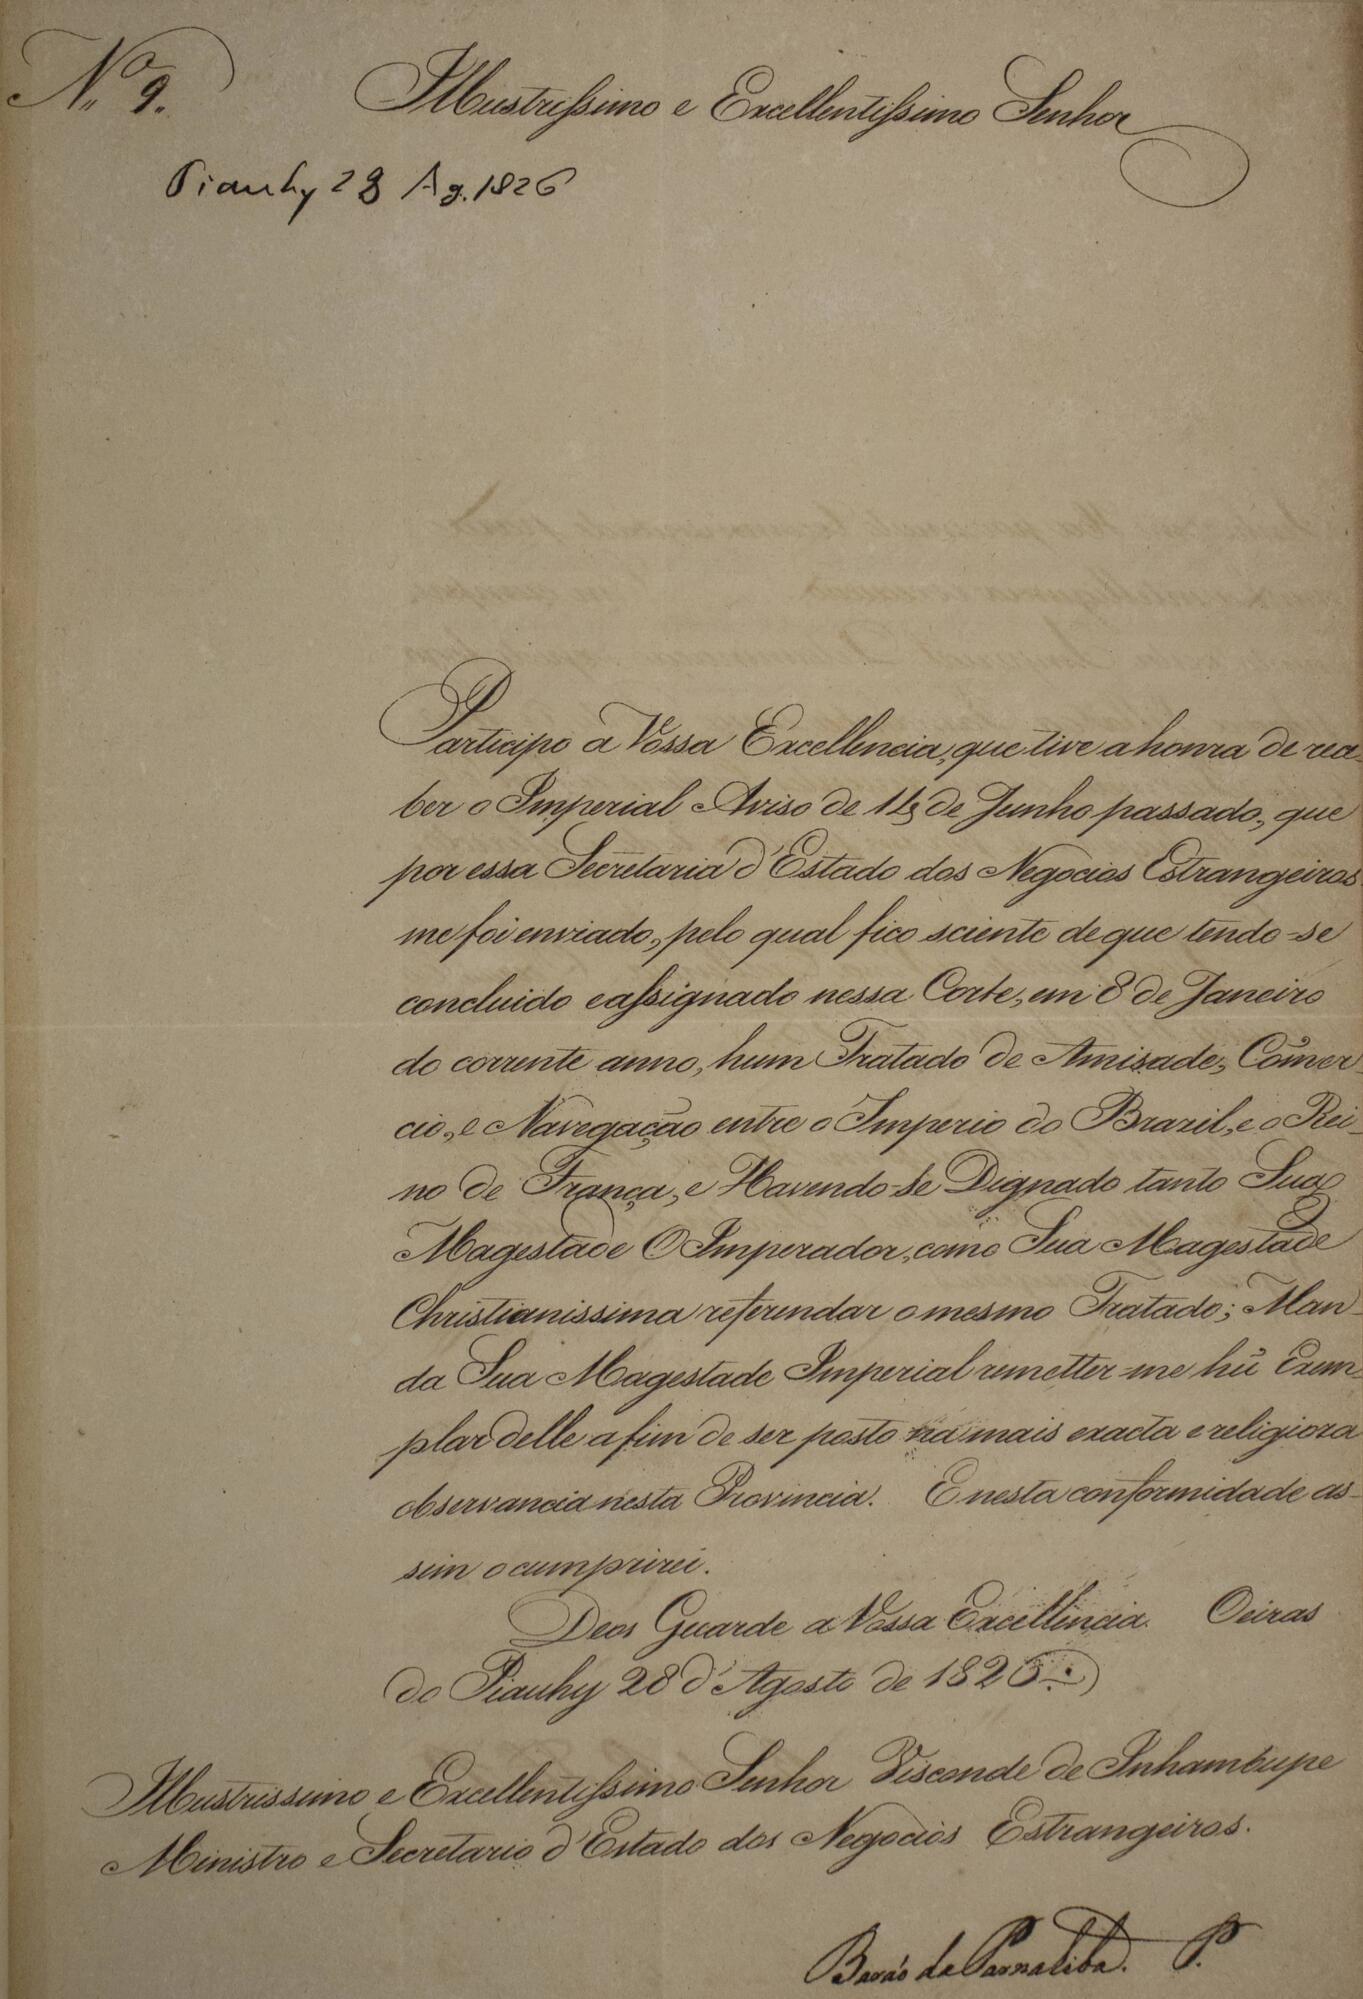 N.º 9.
Illustrissimo e Excellentissimo Senhor
Piauhy 28 Ag. 1826
Participo a Vossa Excellencia, que tive a honra de rece-
ber o Imperial Aviso de 14 de Junho passado, que
por essa Secretaria d'Estado dos Negocios Estrangeiros
me foi enviado, pelo qual fico sciente de que tendo-se
concluido e assignado nessa Corte, em 8 de Janeiro
do corrente anno, hum Tratado de Amisade, Comer-
cio, e Navegação entre o Imperio do Brazil, e o Rei-
no de França, e Havendo-se Dignado tanto Sua
Magestade O Imperador, como Sua Magestade
Christianissima referendar o mesmo Tratado; Man-
da Sua Magestade Imperial remetter-me hũ Exem-
plar delle a fim de ser posto na mais exacta e religioza
observancia nesta Provincia. E nesta conformidade as-
sim o cumprirei.
Deos Guarde a Vossa Excellencia. Oeiras
do Piauhy 28 d'Agosto de 1826
Illustrissimo e Excellentissimo Senhor Visconde de Inhambupe
Ministro e Secretario d'Estado dos Negocios Estrangeiros.
Barão da Parnaiba. P.